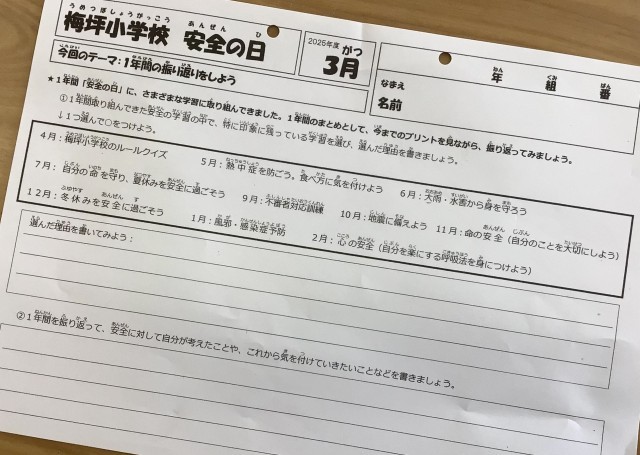 梅坪小学校 安全の日
2025年度 3月
年 組 番
今回のテーマ：1年間の振り返りをしよう
名前
★1年間「安全の日」に、さまざまな学習に取り組んできました。1年間のまとめとして、今までのプリントを見ながら、振り返ってみましょう。
①1年間取り組んできた安全の学習の中で、特に印象に残っている学習を選び、選んだ理由を書きましょう。
↓1つ選んで○をつけよう。
4月：梅坪小学校のルールクイズ 5月：熱中症を防ごう。食べ方に気を付けよう 6月：大雨・水害から身を守ろう
7月：自分の命を守り、夏休みを安全に過ごそう 9月：不審者対応訓練 10月：地震に備えよう 11月：命の安全（自分のことを大切にしよう）
12月：冬休みを安全に過ごそう 1月：風邪・感染症予防 2月：心の安全（自分を楽にする呼吸法を身につけよう）
選んだ理由を書いてみよう：
②1年間を振り返って、安全に対して自分が考えたことや、これから気を付けていきたいことなどを書きましょう。